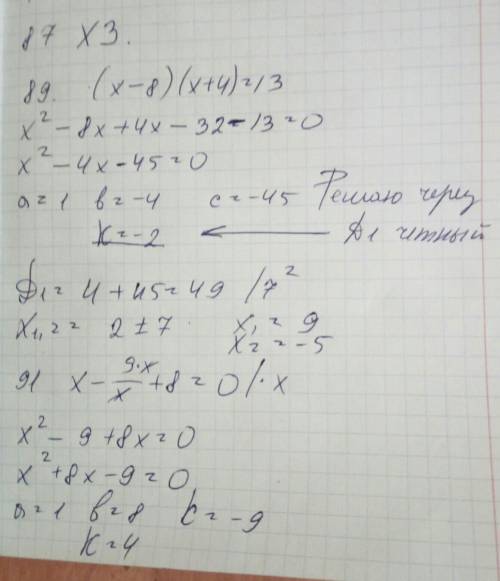 87 ХЗ.
89. (x-8)(x+4)=13
x² - 8x + 4x - 32 - 13 = 0
x² - 4x - 45 = 0
a = 1 в = -4 c = -45 Решаю через
k = -2 ← D1 четный
D1 = 4 + 45 = 49 /7²
x1,2 = 2 ± 7 x1 = 9
x2 = -5
91 x - 9·x/x + 8 = 0 /·x
x² - 9 + 8x = 0
x² + 8x - 9 = 0
a = 1 в = 8 c = -9
k = 4